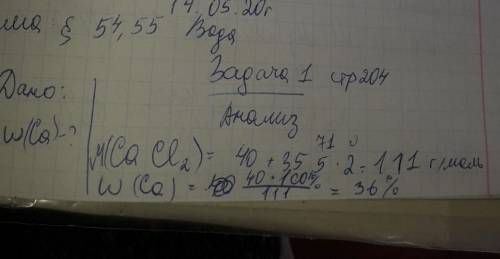 14.05.20г
ма: § 54,55 Вода
Задача 1 стр 204
Дано:
Анализ
W(Ca)-?
71
M(CaCl₂) = 40 + 35,5 · 2 = 111 г/моль
W(Ca) = 40 · 100% / 111 = 36%